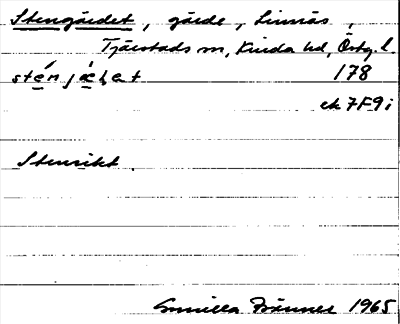 Stengärdet, gärde, Linnäs,
Tjärstads sn, Kinda hd, Östg. l.
178
ek 7F9i
Stenrikt.
Gunilla Brännes 1965